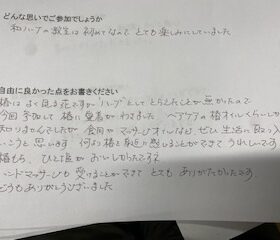 どんな思いでご参加でしょうか
和ハーブの教室は初めてなので とても楽しみにしていました
自由に良かった点をお書きください
椿はよく見る花ですがハーブとしてとらえたことが無かったので
今回参加して椿に愛着がわきました ヘアケアの椿オイルくらいしか
知りませんでしたが 食用や マッサージオイルなど ぜひ生活に取り入
いこうと思います 何より椿を身近に感じることができて うれしいです
椿もち、ひと味 がおいしかったです
ハンドマッサージも受けることができて とても ありがたかったです
どうもありがとうございました